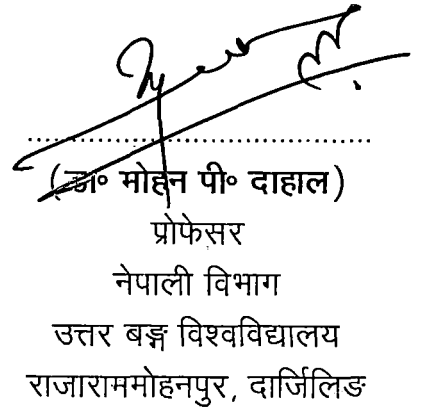 (डा॰ मोहन पी॰ दाहाल)
प्रोफेसर
नेपाली विभाग
उत्तर बङ्ग विश्वविद्यालय
राजाराममोहनपुर, दार्जिलिङ